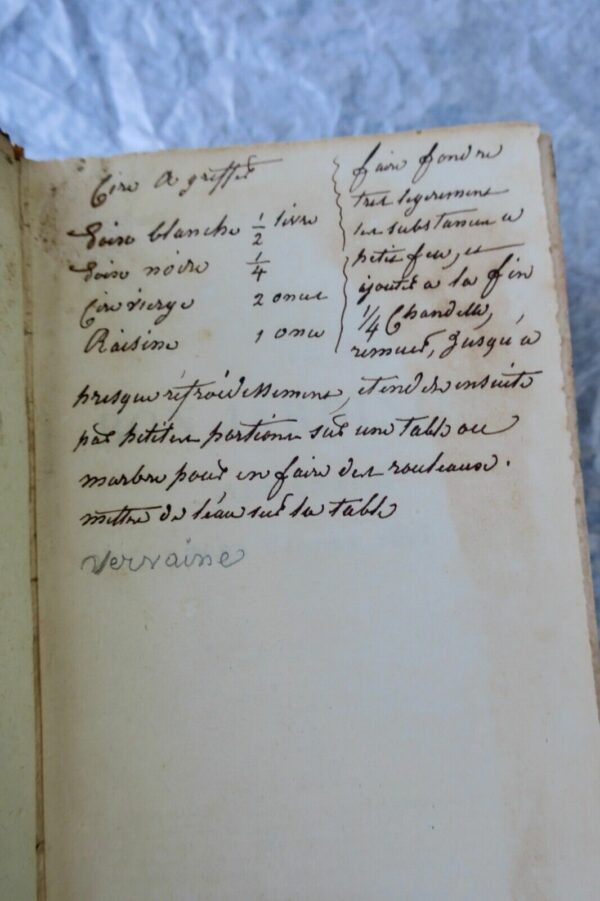 Cire A greffer
Poix blanche 1/2 livre
Poix noire 1/4
Cire vierge 2 onces
Raisine 1 once
faire fondre
tres legerement
les substances a
petit feu, et
ajouté a la fin
1/4 Chandelle,
remuer, Jusqu'a
presque réfroidissement, etendre ensuite
par petites portions sur une table ou
marbre pour en faire des rouleaux.
mettre de l'eau sur la table
Vervaine